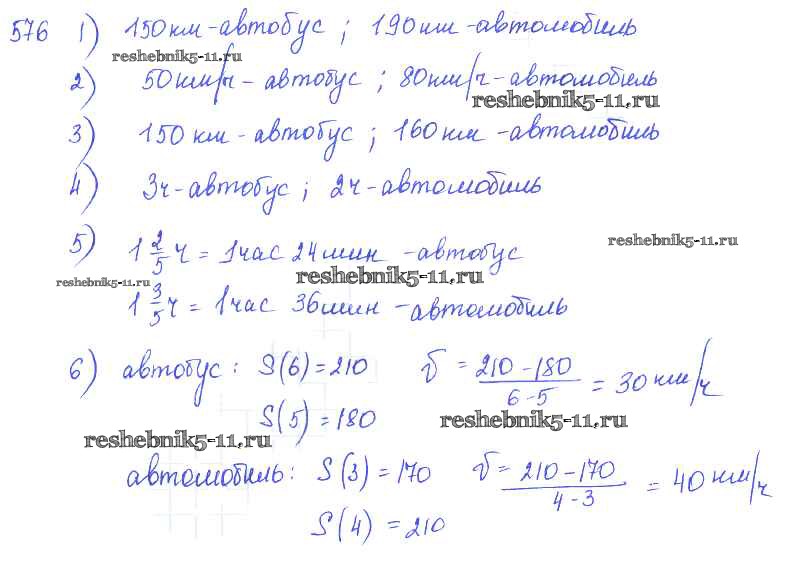 576 1) 150 км - автобус ; 190 км - автомобиль
reshebnik5-11.ru
2) 50 км/ч - автобус ; 80 км/ч - автомобиль
reshebnik5-11.ru
3) 150 км - автобус ; 160 км - автомобиль
4) 3ч - автобус ; 2ч - автомобиль
5) 1 2/5 ч = 1 час 24 мин - автобус
reshebnik5-11.ru
reshebnik5-11.ru
reshebnik5-11.ru
1 3/5 ч = 1 час 36 мин - автомобиль
6) автобус : S(6) = 210 v = (210 - 180)/(6 - 5) = 30 км/ч
S(5) = 180
reshebnik5-11.ru
reshebnik5-11.ru
автомобиль : S(3) = 170 v = (210 - 170)/(4 - 3) = 40 км/ч
S(4) = 210